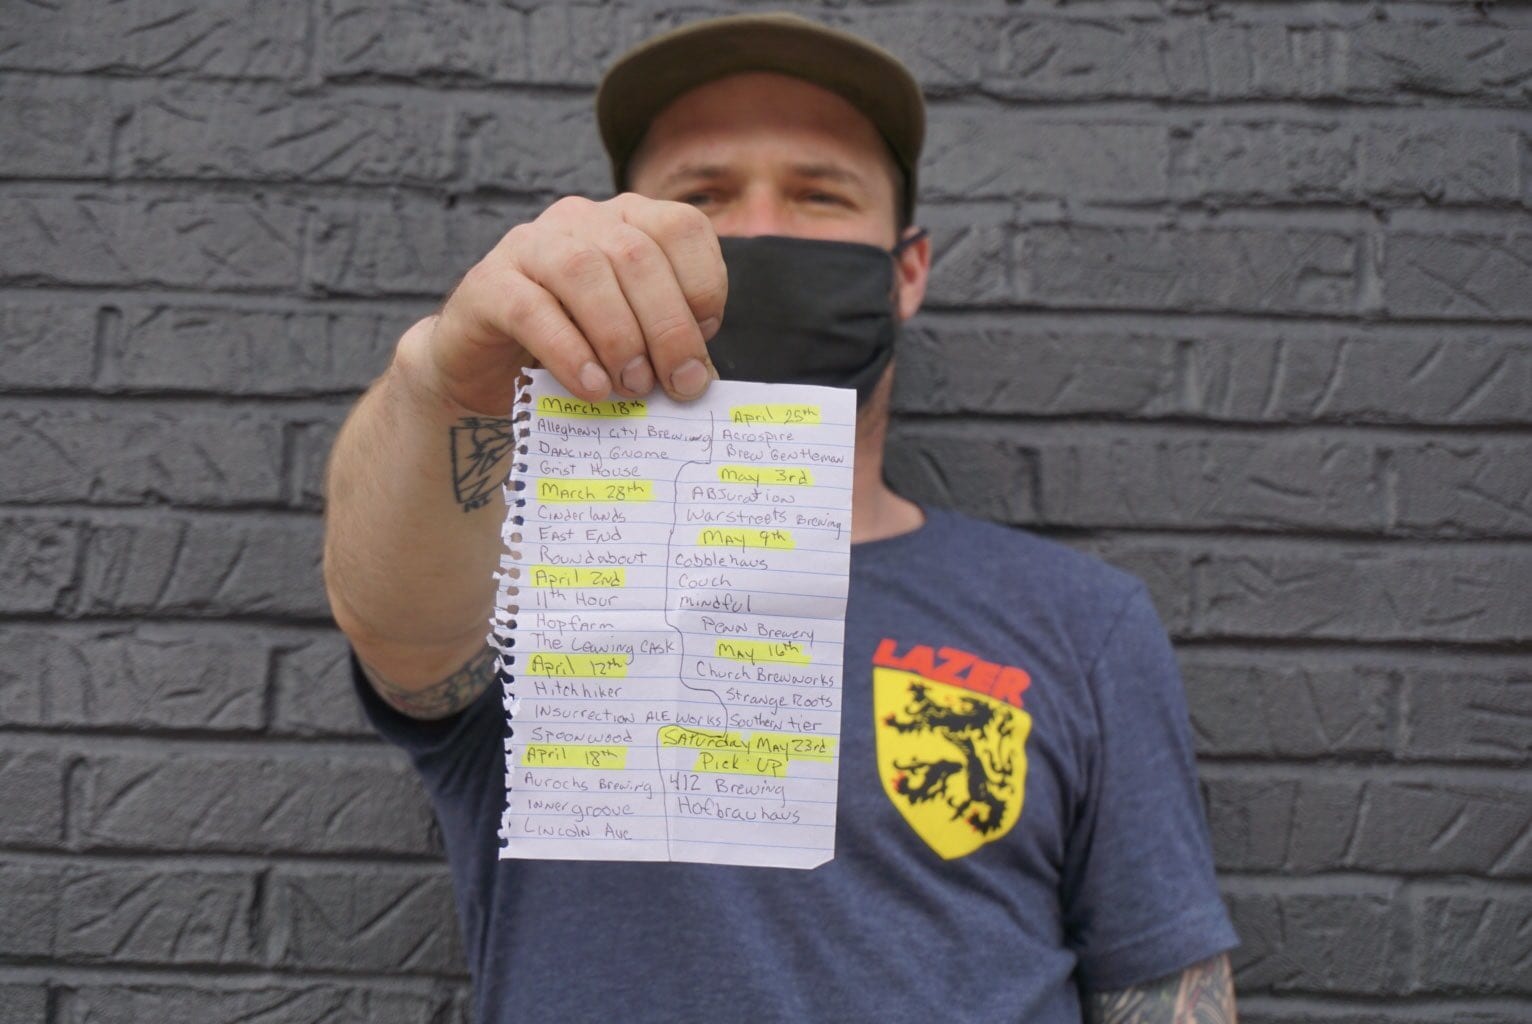 March 18th
Allegheny City Brewing
Dancing Gnome
Grist House
March 28th
Cinderlands
East End
Roundabout
April 2nd
11th Hour
Hopfarm
The Leaning Cask
April 12th
Hitchhiker
Insurrection Ale Works
Spoonwood
April 18th
Aurochs Brewing
Inner groove
Lincoln Ave
April 25th
Acrospire
Brew Gentleman
May 3rd
Abjuration
Warstreets Brewing
May 9th
Cobblehaus
Couch
Mindful
Penn Brewery
May 16th
Church Brewworks
Strange Roots
Southern tier
Saturday May 23rd
Pick UP
412 Brewing
Hofbrauhaus
LAZER